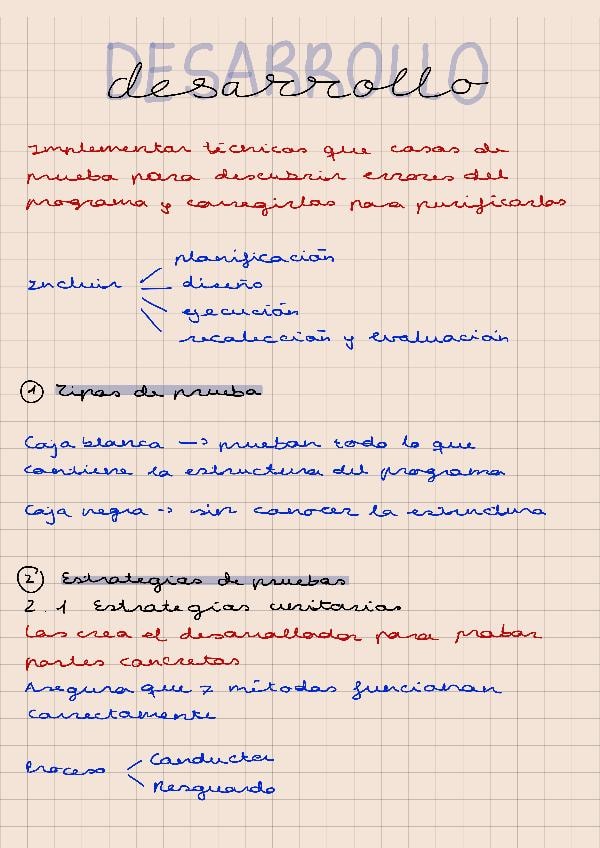 DESARROLLO
desarrollo
Implementar técnicas que casos de
prueba para descubrir errores del
programa y corregirlos para purificarlos
Incluir
planificación
diseño
ejecución
recolección y evaluación
1 Tipos de prueba
Caja blanca -> prueban todo lo que
contiene la estructura del programa
Caja negra -> sin conocer la estructura
2 Estrategias de pruebas
2.1 Estrategias unitarias
Las crea el desarrollador para probar
partes concretas
Asegura que 2 métodos funcionan
correctamente
Proceso
Conductor
Resguardo